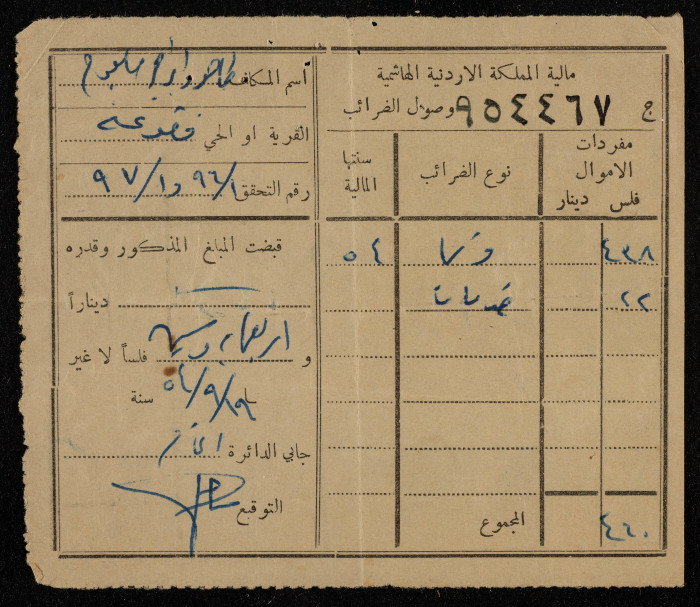 مالية المملكة الاردنية الهاشمية
ج ٩٥٤٤٦٧ وصول الضرائب
مفردات الاموال
فلس دينار
نوع الضرائب
سنتها المالية
٤٣٨ ٥٤
٢٢ خدمات
المجموع ٤٦٠
اسم المكلف
القرية او الحي
رقم التحقق ٩٦/١ و ٩٧/١
قبضت المبلغ المذكور وقدره
ديناراً
و اربعماية وستون فلساً لا غير
سنة ٥٤/٩/١٩
جابي الدائرة
التوقيع